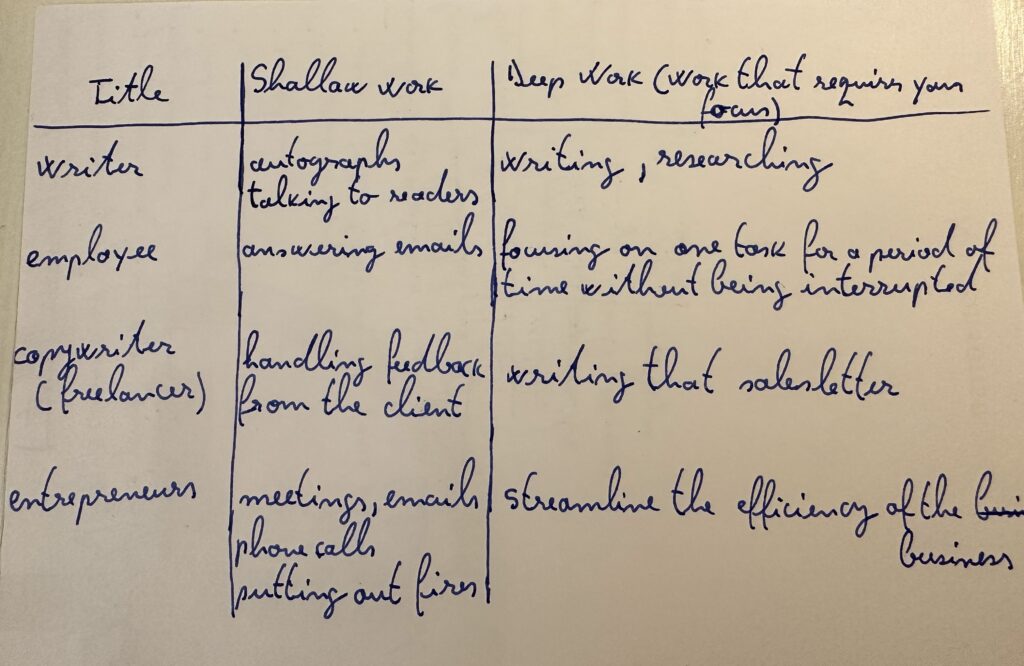 Title
Shallow work
Deep Work (work that requires your
focus)
writer
autographs
talking to readers
writing, researching
employee
answering emails
focusing on one task for a period of
time without being interrupted
copywriter
(freelancer)
handling feedback
from the client
writing that salesletter
entrepreneurs
meetings, emails
phone calls
putting out fires
streamline the efficiency of the busi
business